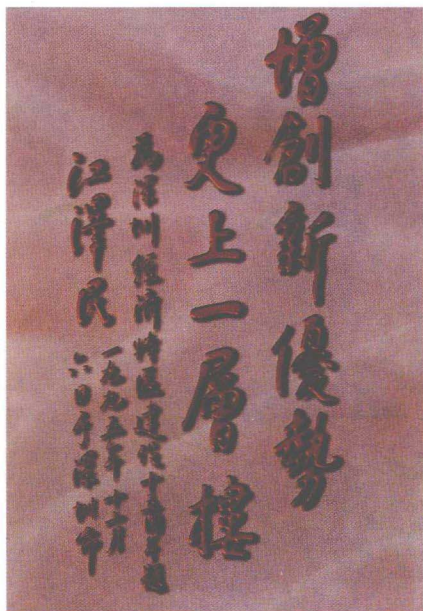 增創新優勢
更上一層樓
為深圳經濟特區建設十五周年題
江澤民
一九九五年十二月
六日于深圳市